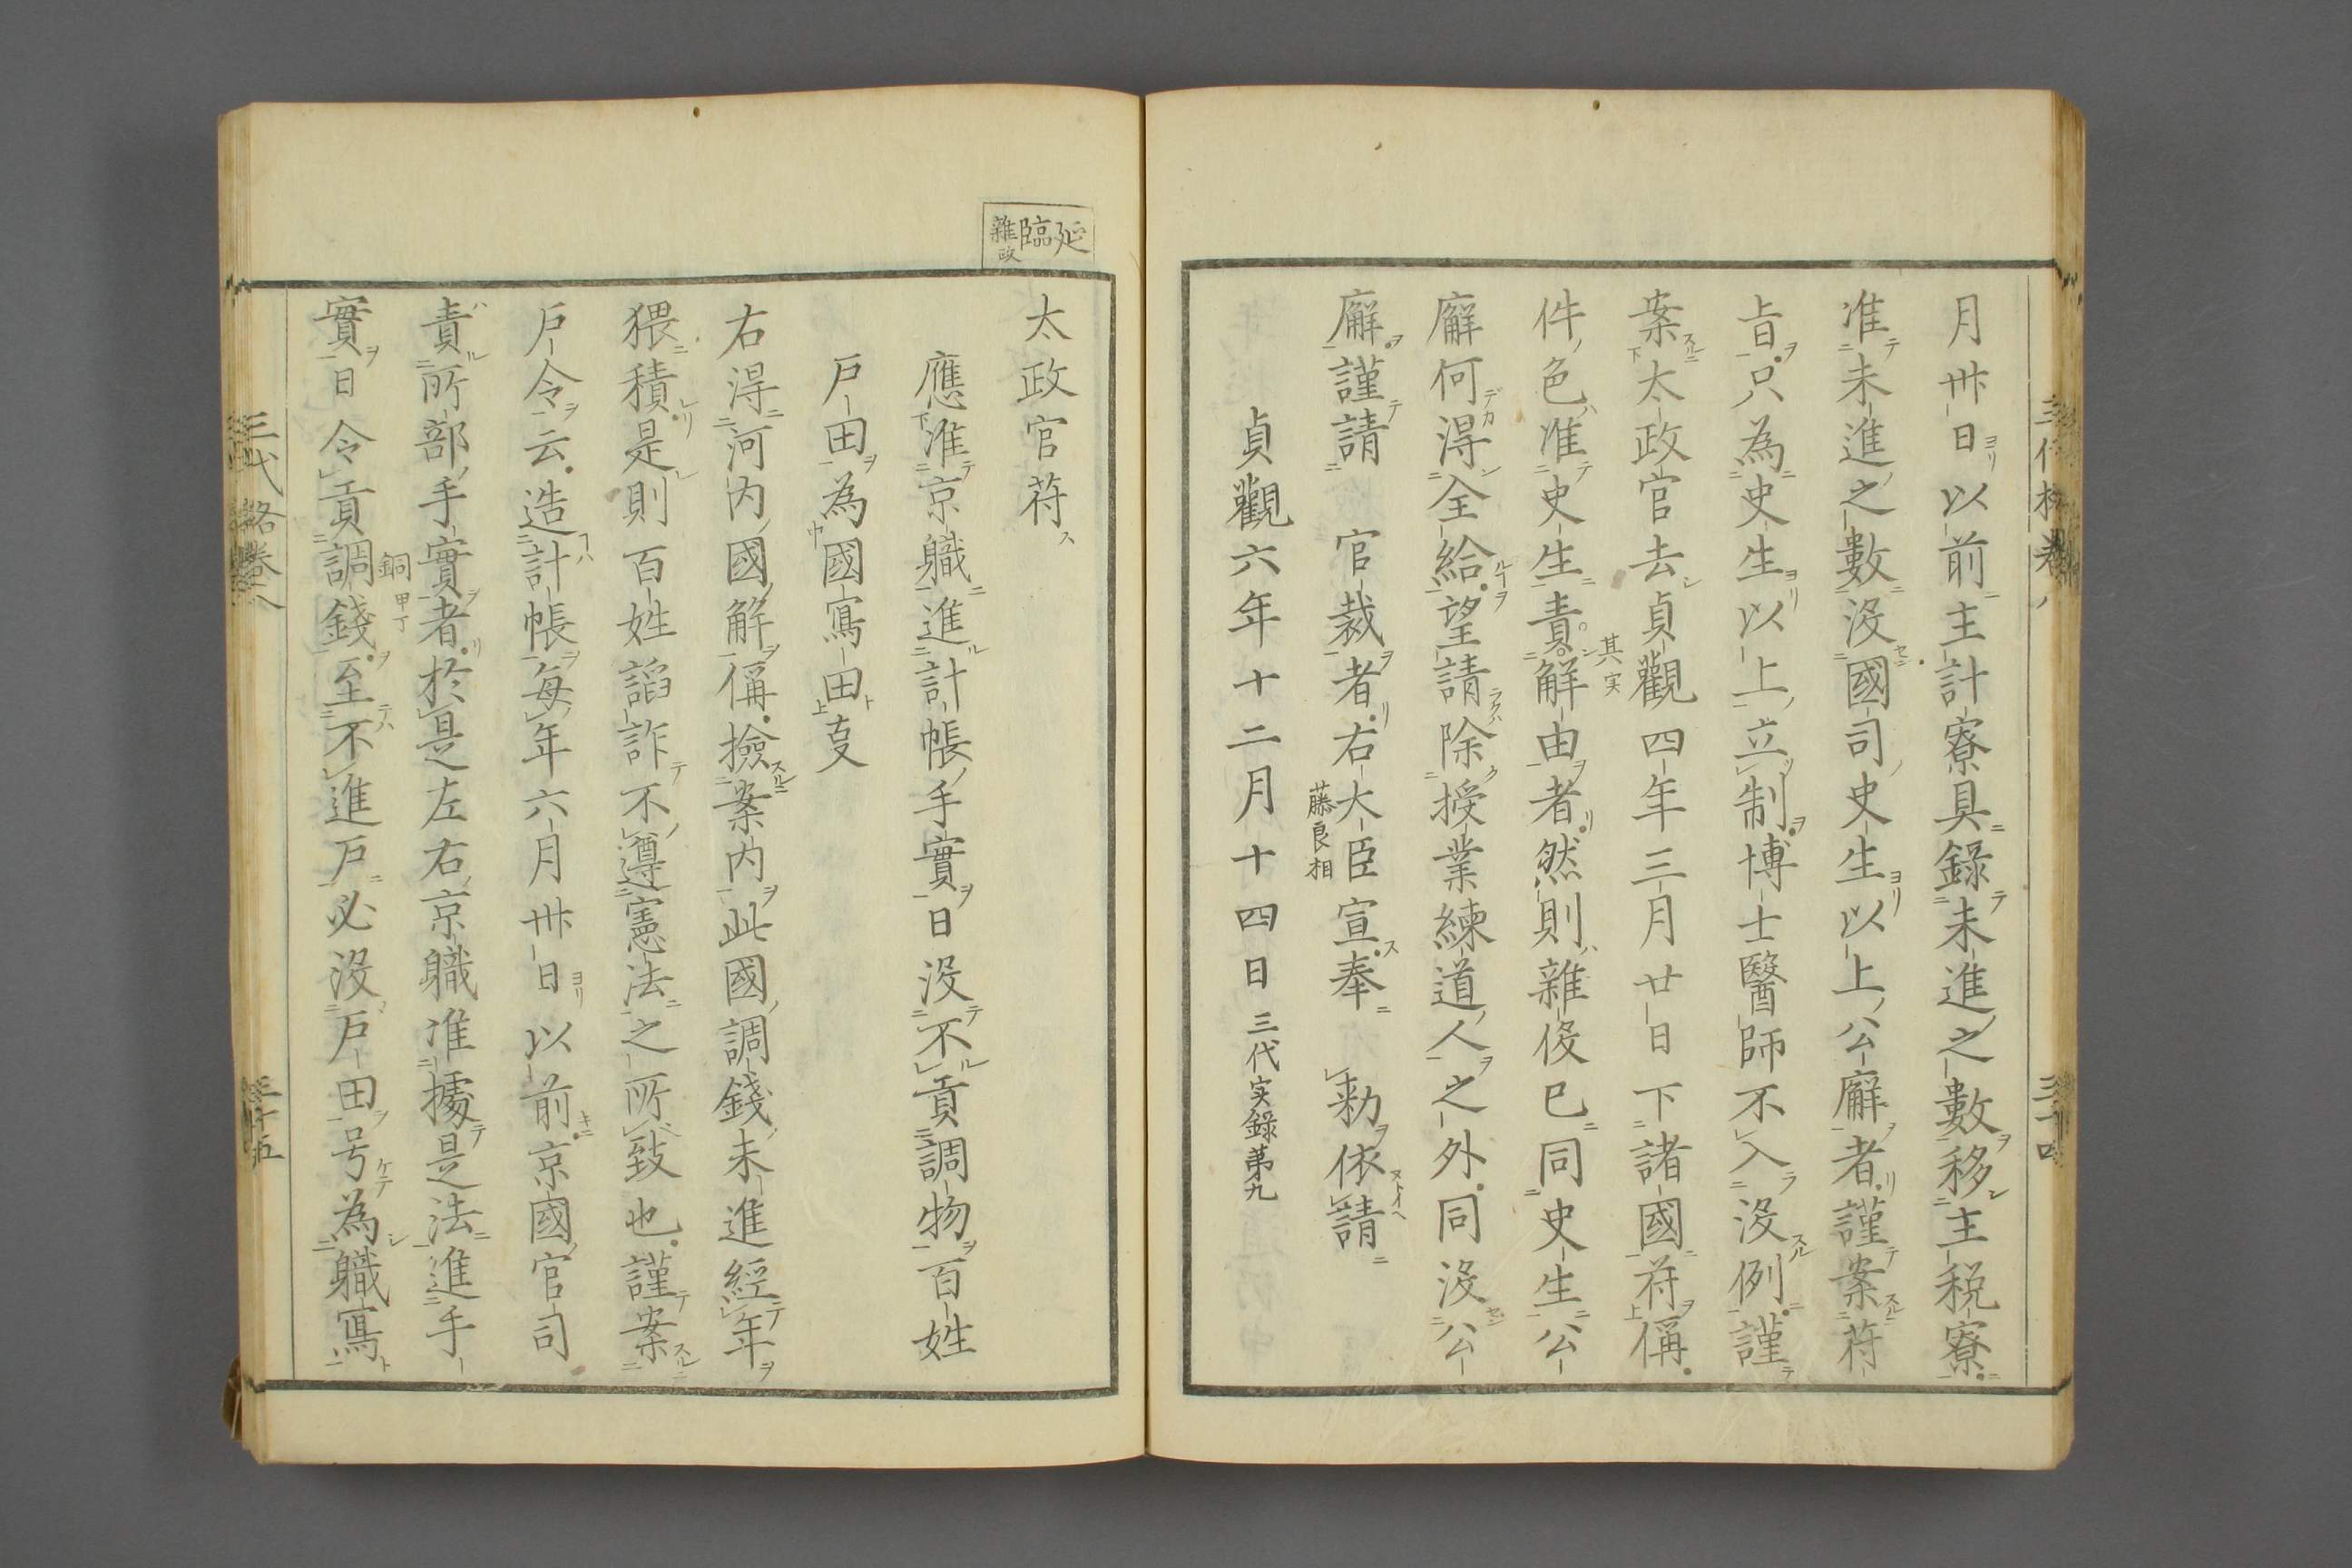 月卅日以前主計寮具錄未進之數移主税寮
准未進之數没國司史生以上公廨者謹案苻
旨只為史生以上立制博士醫師不入没例謹
案太政官去貞觀四年三月廿日下諸國苻偁
其実
件色准史生責解由者然則雜伇已同史生公
廨何得全給望請除授業練道人之外同没公
廨謹請官裁者右大臣宣奉勑依請
藤良相
貞觀六年十二月十四日三代实錄苐九
三十四
延臨雜政
太政官苻
應准京職進計帳手實日没不貢調物百姓
戶田為國寫田叓
右得河内國解偁撿案内此國調錢未進經年
猥積是則百姓謟詐不遵憲法之所致也謹案
戶令云造計帳每年六月卅日以前京國官司
責所部手實者於是左右京職准據是法進手
銅甲丁
實日令貢調錢至不進戶必没戶田号為職寫
三代格卷八
三十五